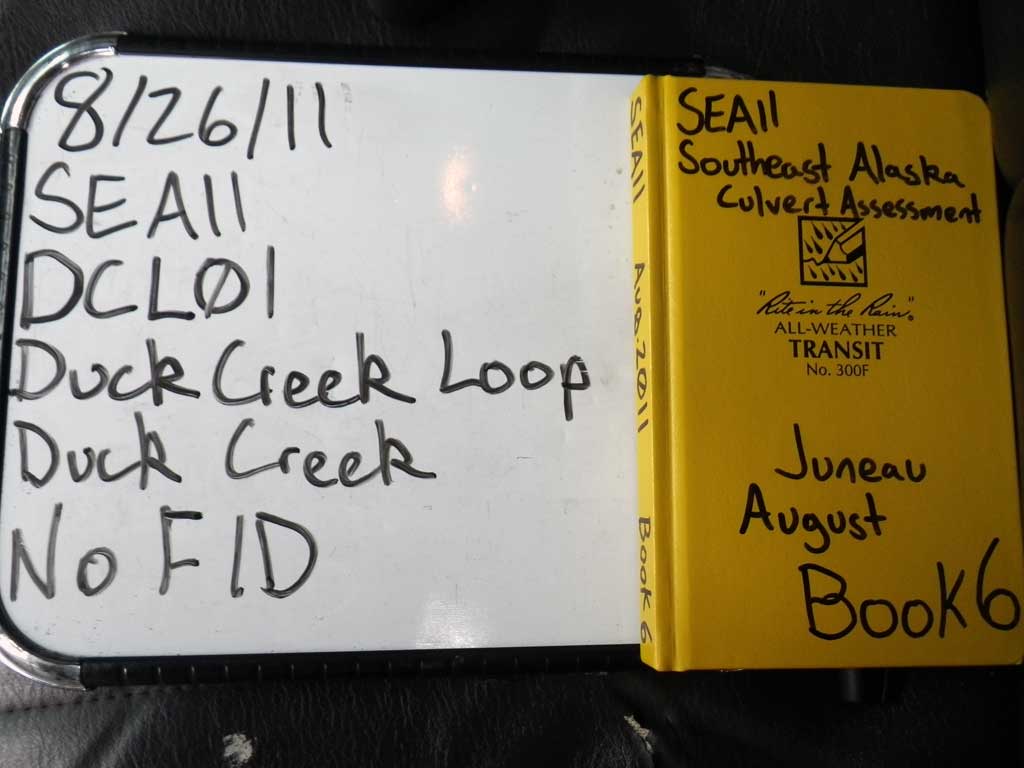 8/26/11
SEA11
DCLØ1
Duck Creek Loop
Duck Creek
No FID
SEA11 Aug. 2011 Book 6
SEA11
Southeast Alaska
Culvert Assessment
"Rite in the Rain"®
ALL-WEATHER
TRANSIT
No. 300F
Juneau
August
Book 6